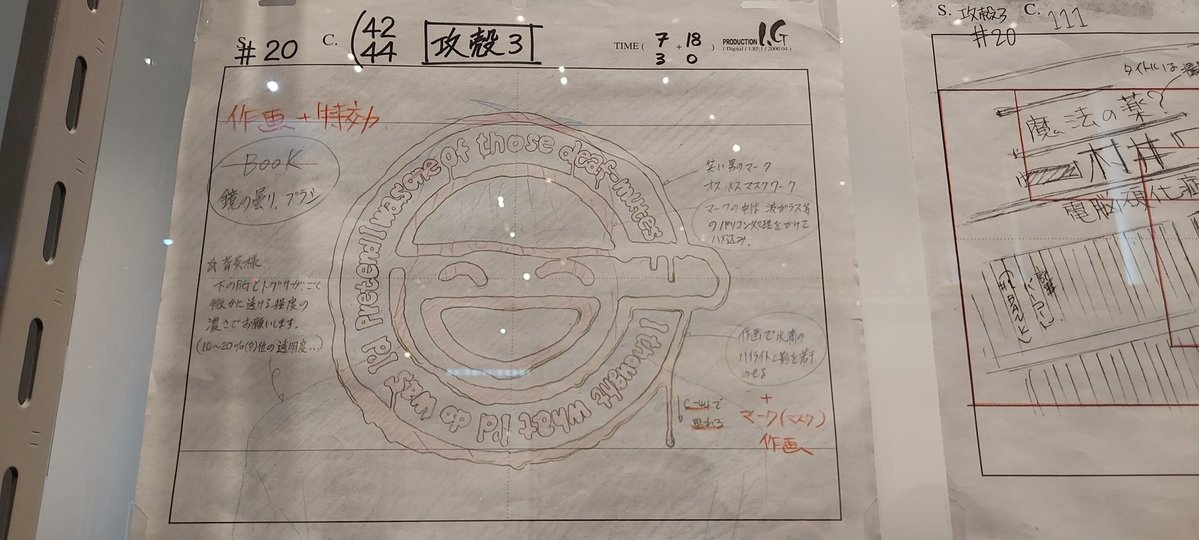 S. #20 C. (42 44 攻殻3 TIME ( 7 + 18 ) 3 0 PRODUCTION I.G
( Digital / 1.85:1 / 2000.04 )
作画+特効
BOOK
鏡の曇り、ブラシ
I thought what I'd do was, I'd Pretend I was one of those deaf-mutes
笑い男のマーク
オス・メスマスクワーク
マークの中は 波ガラス等
のパソコン処理をかけて
ハメ込み.
背景様
下のBGとトグサがごく
微かに透ける程度の
濃さでお願いします。
(10~20%(?)位の透明度...)
作画で水滴の
ハイライトと影を若干
のせる
C-44で
垂れる
+
マーク(マスク)
作画
S. 攻殻3 #20 C. 111
タイトルは
魔法の薬?
電脳硬化